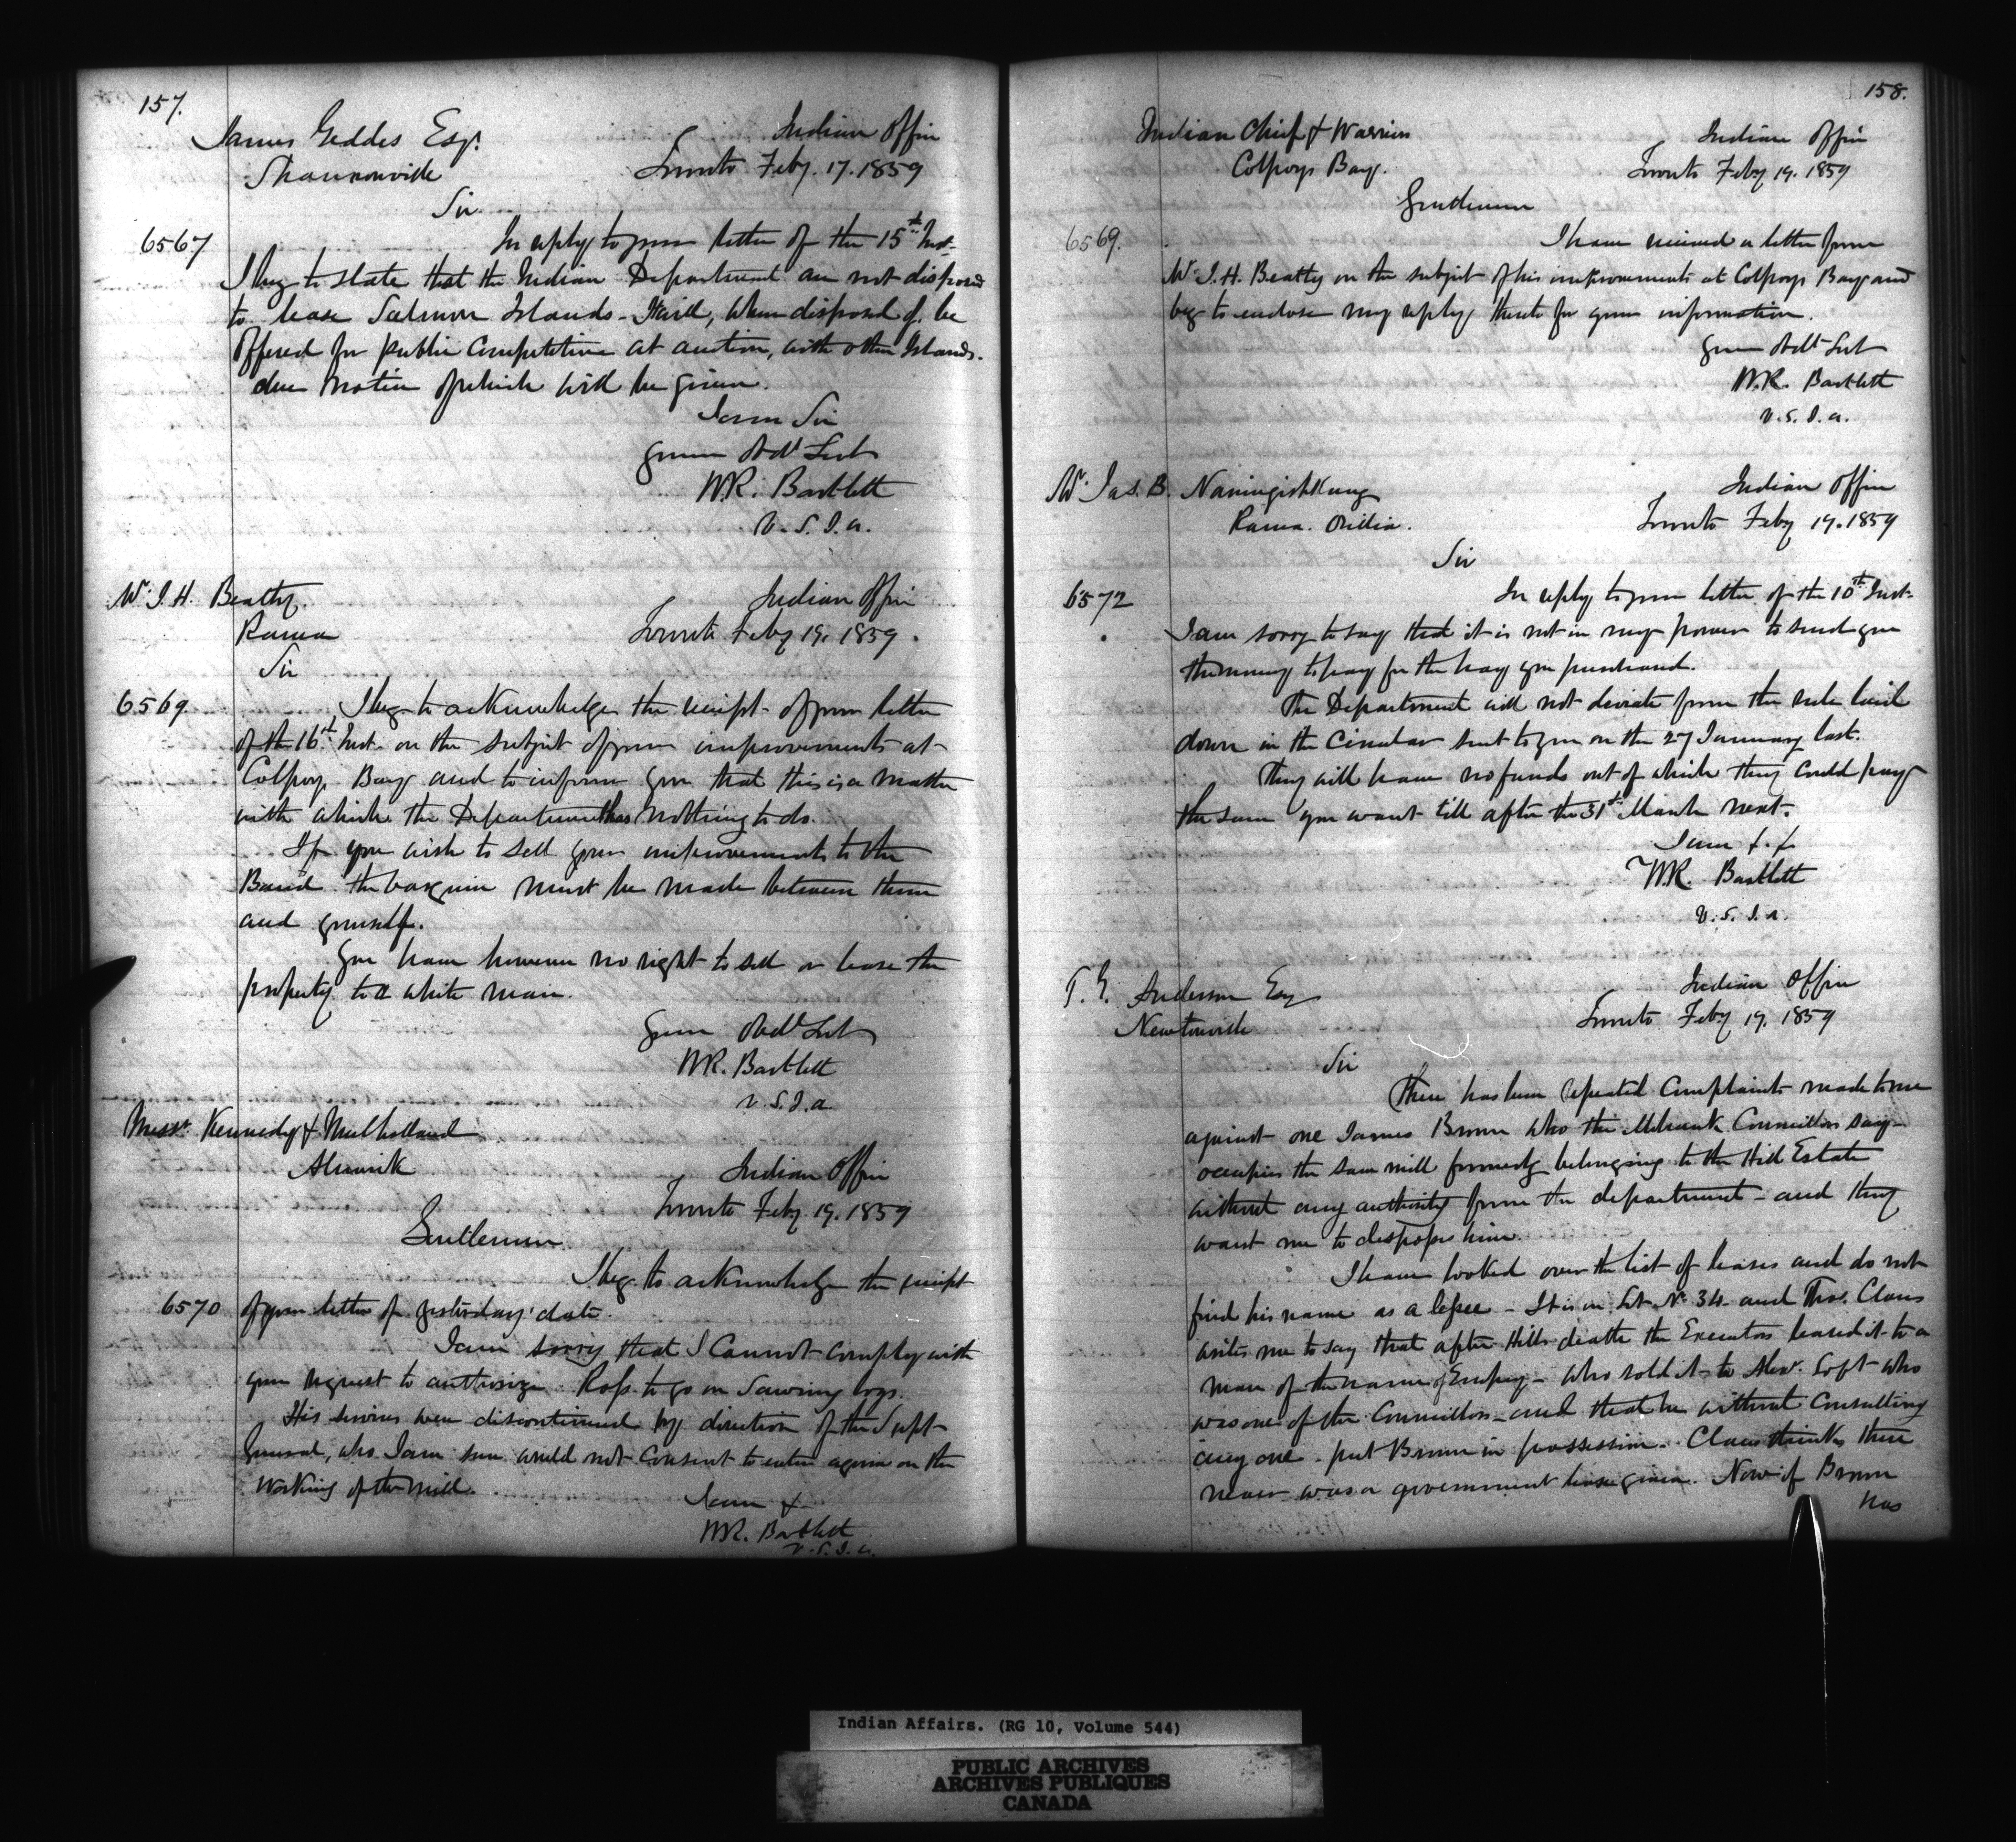 157.
James Geddes Esqr.
Shannonville
Indian Office
Toronto Feby. 17. 1859
Sir
6567
In reply to your letter of the 15th Inst.
I beg to state that the Indian Department are not disposed
to lease Salmon Islands - It will, when disposed of, be
offered for public Competition at auction, with other Islands.
due Notice of which will be given.
I am Sir
Your Obdt Servt
W.R. Bartlett
V.S.I.A.
Mr. J. H. Beatty.
Rama
Indian Office
Toronto Feby 19. 1859.
Sir
6569.
I beg to acknowledge the receipt of your letter
of the 16th Inst. on the subject of your improvements at
Colpoys Bay and to inform you that this is a matter
with which the Department has nothing to do.
If you wish to sell your improvements to the
Band the bargain must be made between them
and yourself.
You have however no right to sell or lease the
property to a white man.
Your Obdt Servt
W.R. Bartlett
V.S.I.A.
Messrs. Kennedy & Mulholland
Alnwick
Indian Office
Toronto Feby. 19. 1859
Gentlemen
I beg to acknowledge the receipt
6570 of your letter of yesterday's date.
I am sorry that I Cannot comply with
your request to authorize Ross to go on Sawing logs.
His services were discontinued by direction of the Supt.
General, who I am sure would not Consent to enter again on the
Working of the mill.
I am &
W.R. Bartlett
V.S.I.A.
158.
Indian Chief & Warriors
Colpoys Bay.
Indian Office
Toronto Feby 19. 1859
Gentlemen
6569.
I have received a letter from
Mr. J. H. Beatty on the subject of his improvements at Colpoys Bay and
beg to enclose my reply thereto for your information.
Your Obdt Servt
W.R. Bartlett
V.S.I.A.
Mr. Jas. B. Naningishkung
Rama. Orillia.
Indian Office
Toronto Feby 19. 1859
Sir
6572
In reply to your letter of the 10th Inst.
I am sorry to say that it is not in my power to send you
the money to pay for the hay you purchased.
The Department will not deviate from the rule laid
down in the Circular sent to you on the 27 January last.
They will have no funds out of which they could pay
the sum you want till after the 31st March next.
I am &.&
W.R. Bartlett
V.S.I.A.
T. G. Anderson Esq
Newtonville
Indian Office
Toronto Feby 19. 1859
Sir
There has been repeated Complaints made to me
against one James Brown who the Mohawk Councillors say
occupies the saw mill formerly belonging to the Hill Estate
without any authority from the department - and they
want me to dispossess him.
I have looked over the list of leases and do not
find his name as a lessee - It is on Lot No. 34 and Thos. Claus
writes me to say that after Hills death the Executors leased it to a
man of the name of Empey - who sold it to Alexr. Loft who
was one of the Councillors - and that he without Consulting
any one. put Brown in possession. Claus thinks there
never was a government lease given. Now if Brown
has
Indian Affairs. (RG 10, Volume 544)
PUBLIC ARCHIVES
ARCHIVES PUBLIQUES
CANADA